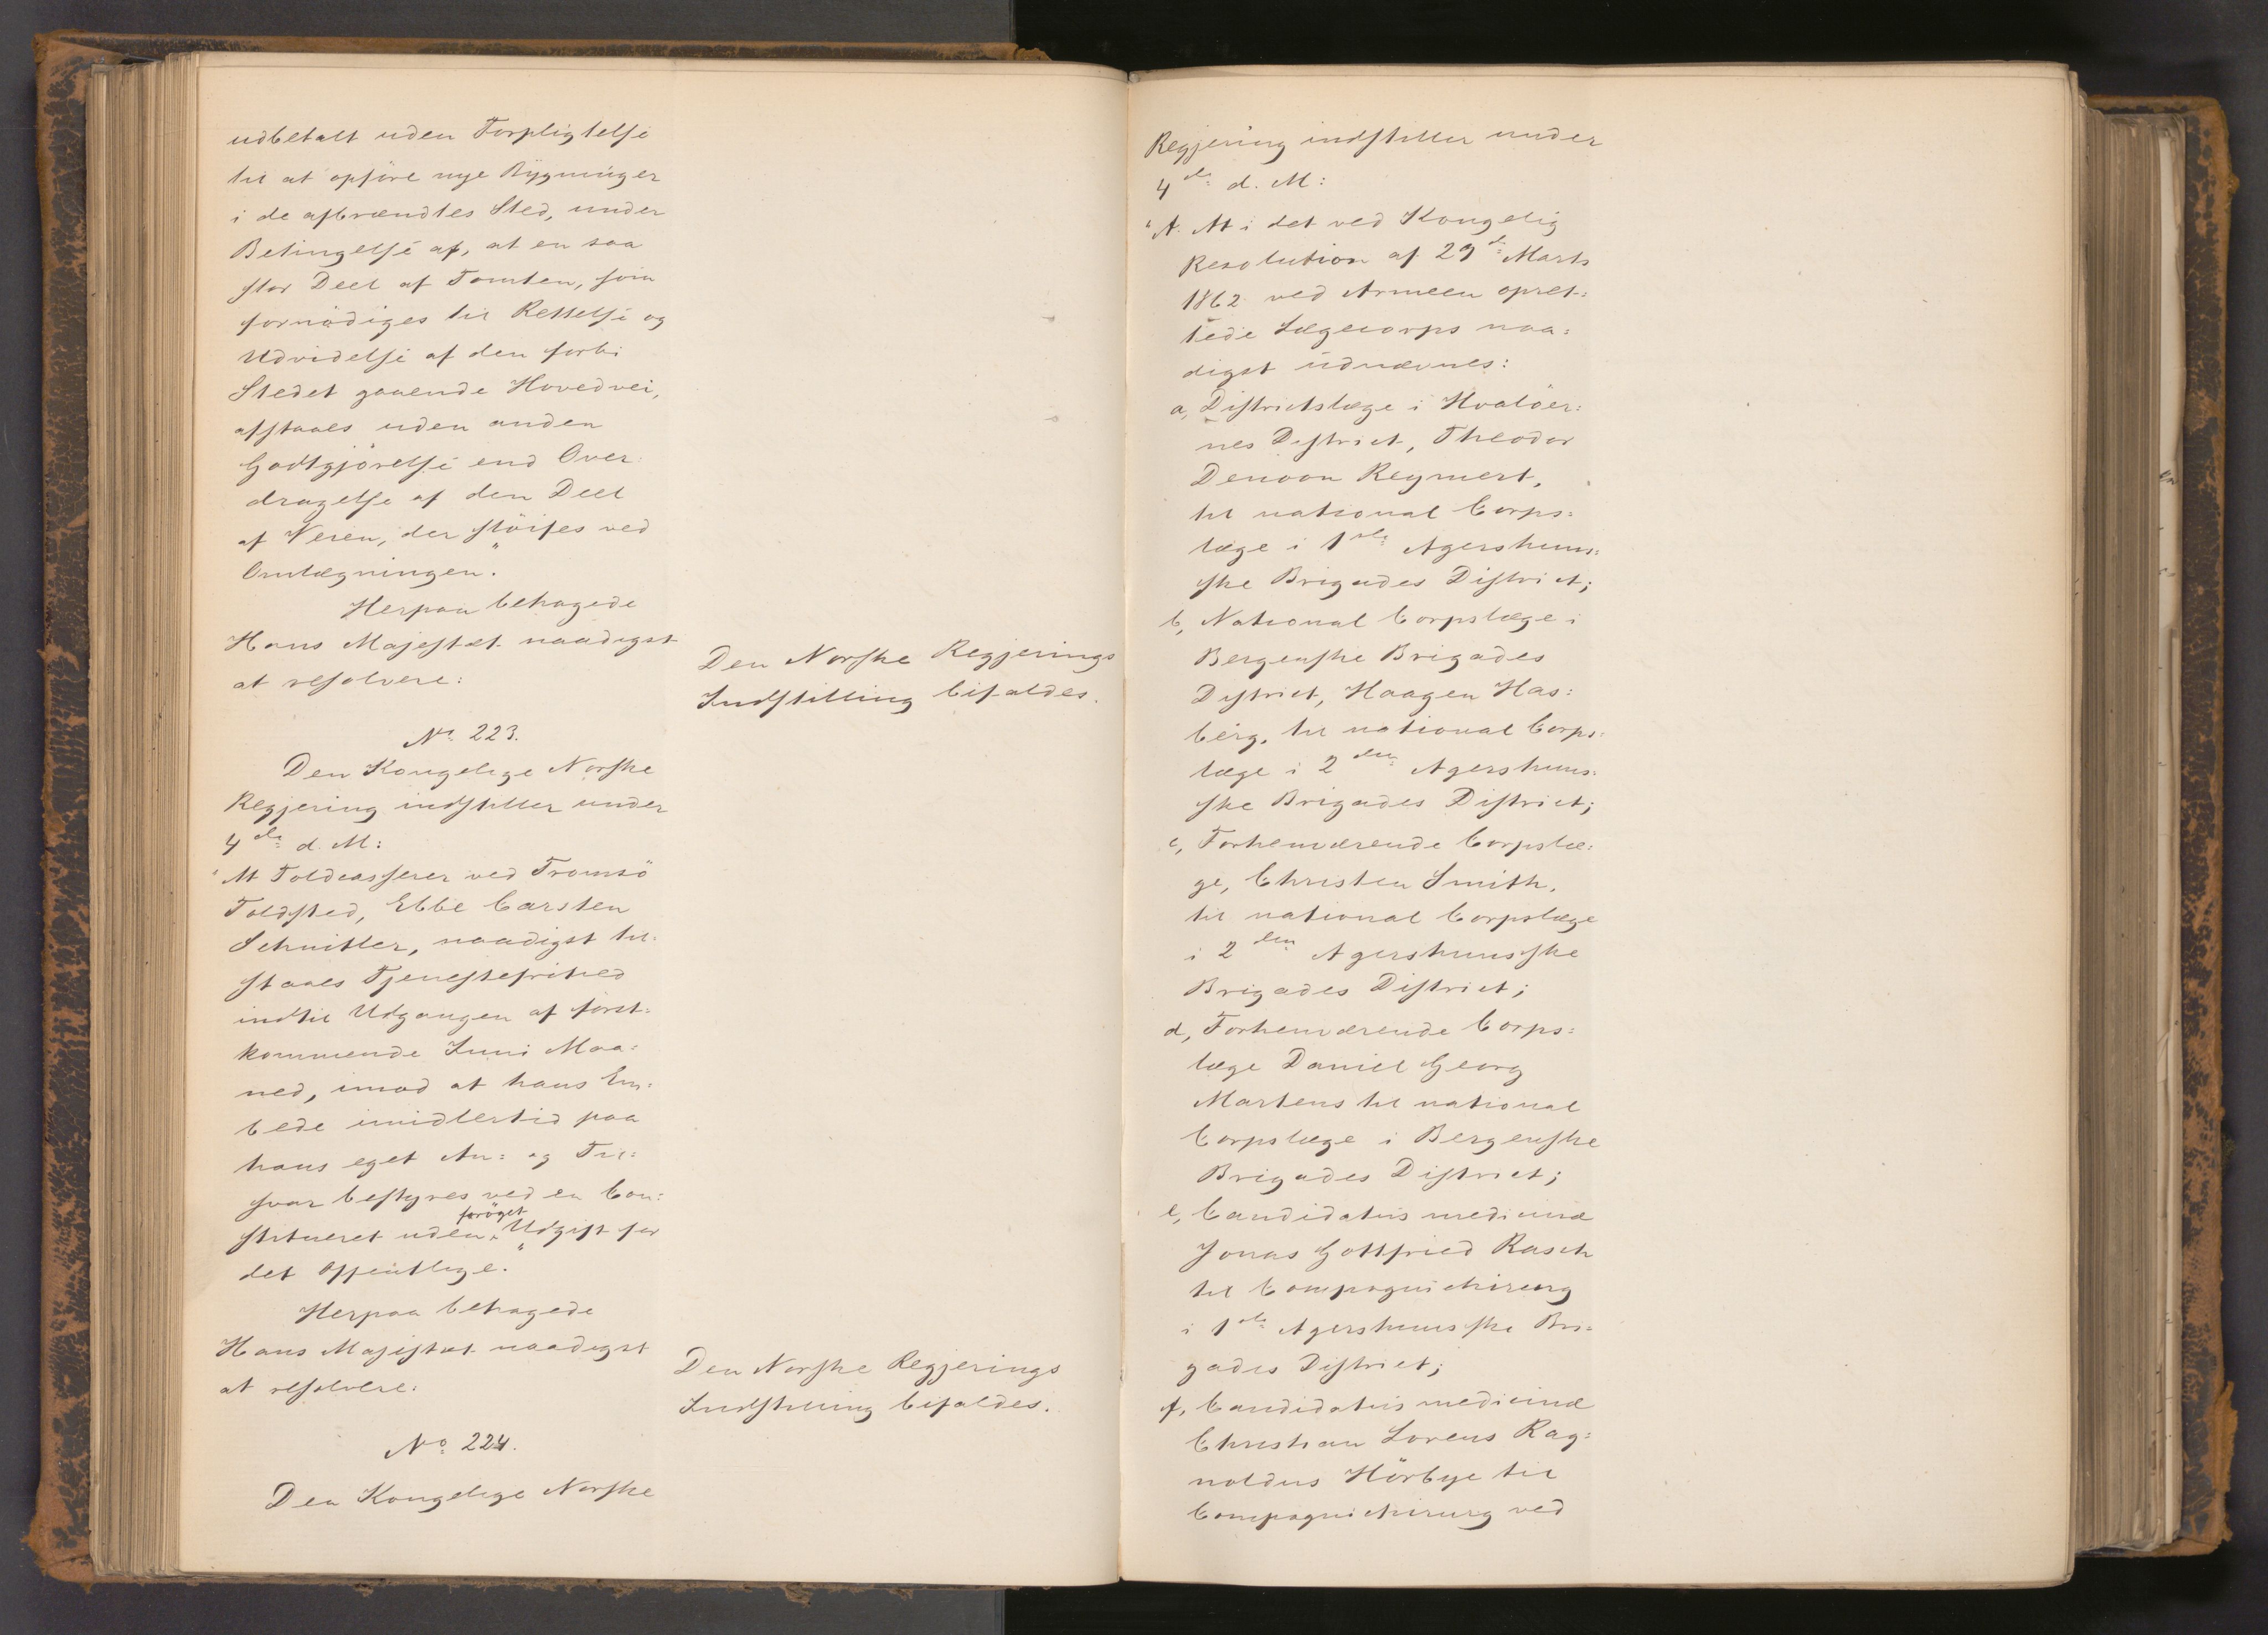 udbetalt uden Forpligtelse
til at opføre nye Bygninger
i de afbrændtes Sted, under
Betingelse af, at en saa
stor Deel af Tomten, som
fornødiges til Rettelse og
Udvidelse af den forbi
Stedet gaaende Hovedvei,
afstaaes uden anden
Godtgjörelse end Over-
dragelse af den Deel
af Veien, der slöifes ved
Omlægningen."
Herpaa behagede
Hans Majestæt naadigst
at resolvere:
Den Norske Regjerings
Indstilling bifaldes.
No. 223.
Den Kongelige Norske
Regjering indstiller under
4de d. M:
"At Toldcasserer ved Tromsö
Toldsted, Ebbe Carsten
Schnitler, naadigst til=
staaes Tjenestefrihed
indtil Udgangen af först=
kommende Juni Maa=
ned, imod at hans Em=
bede imidlertid paa
hans eget An= og Til=
svar bestyres ved en Con=
stitueret uden foröget Udgift for
det Offentlige."
Herpaa behagede
Hans Majestæt naadigst
at resolvere:
Den Norske Regjerings
Indstilling bifaldes.
No. 224.
Den Kongelige Norske
Regjering indstiller under
4de d. M:
"A. At i det ved Kongelig
Resolution af 29de Marts
1862 ved Armeen opret=
tede Lægecorps naa=
digst udnævnes:
a, Districtslæge i Hvalöer=
nes District, Theodor
Denoon Reymert,
til national Corps=
læge i 1ste Agershuus=
ske Brigades District;
b, National Corpslæge i
Bergenske Brigades
District, Haagen Has=
berg, til national Corps=
læge i 2den Agershuus=
ske Brigades District;
c, Forhenværende Corpslæ=
ge, Christen Smith,
til national Corpslæge
i 2den Agershuusske
Brigades District;
d, Forhenværende Corps=
læge Daniel Georg
Martens til national
Corpslæge i Bergenske
Brigades District;
e, Candidatus medicinæ
Jonas Gottfried Rasch
til Compagnichirurg
i 1ste Agershuusske Bri=
gades District;
f, Candidatus medicinæ
Christian Lorens Rag=
noldus Hörbye til
Compagnichirurg ved